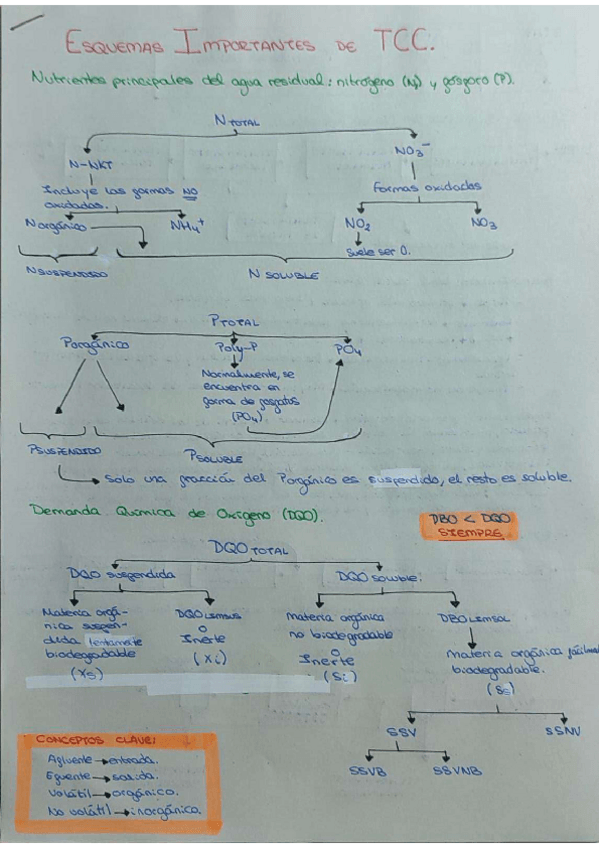 ESQUEMAS IMPORTANTES DE TCC.
Nutrientes principales del agua residual: nitrógeno (N) y fósforo (P).
N TOTAL
N-NKT
NO3⁻
Incluye las formas NO
oxidadas.
Formas oxidadas
Norgánico
NH4⁺
NO2
NO3
Suele ser 0.
NSUSPENDIDO
N SOLUBLE
PTOTAL
Porgánico
Poly-P
PO4
Normalmente, se
encuentra en
forma de fosfatos
(PO4)
PSUSPENDIDO
PSOLUBLE
Solo una fracción del Porgánico es suspendido, el resto es soluble.
Demanda Química de Oxígeno (DQO).
DBO < DQO
SIEMPRE
DQO TOTAL
DQO suspendida
DQO soluble.
Materia orgá-
nica suspen-
dida lentamente
biodegradable
(Xs)
DQOLIMSUS
o
Inerte
(Xi)
materia orgánica
no biodegradable
o
Inerte
(Si)
DBOLIMSOL
materia orgánica fácilmen
biodegradable.
(Ss)
SSV
SSNV
SSVB
SSVNB
CONCEPTOS CLAVE:
Afluente → entrada.
Efluente → salida.
Volátil → orgánico.
No volátil → inorgánico.